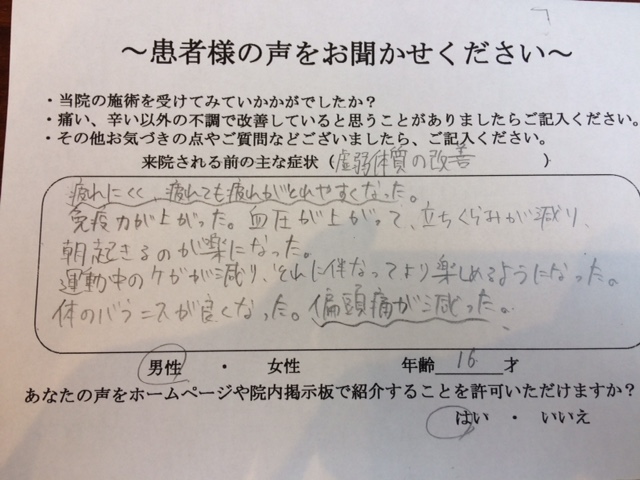 ～患者様の声をお聞かせください～
・当院の施術を受けてみていかかがでしたか？
・痛い、辛い以外の不調で改善していると思うことがありましたらご記入ください。
・その他お気づきの点やご質問などございましたら、ご記入ください。
来院される前の主な症状（虚弱体質の改善）
疲れにくく、疲れても疲れがとれやすくなった。
免疫力が上がった。血圧が上がって、立ちくらみが減り、
朝起きるのが楽になった。
運動中のケガが減り、それに伴なってより楽しめるようになった。
体のバランスが良くなった。偏頭痛が減った。
男性 ・ 女性 年齢 16 才
あなたの声をホームページや院内掲示板で紹介することを許可いただけますか？
はい ・ いいえ